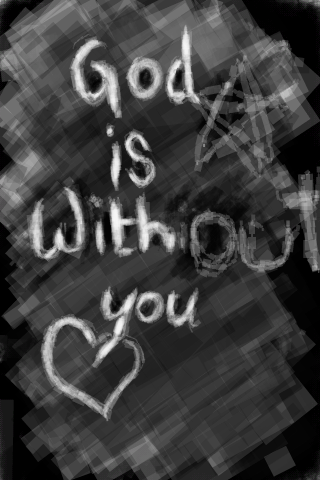 God
is
Without
you